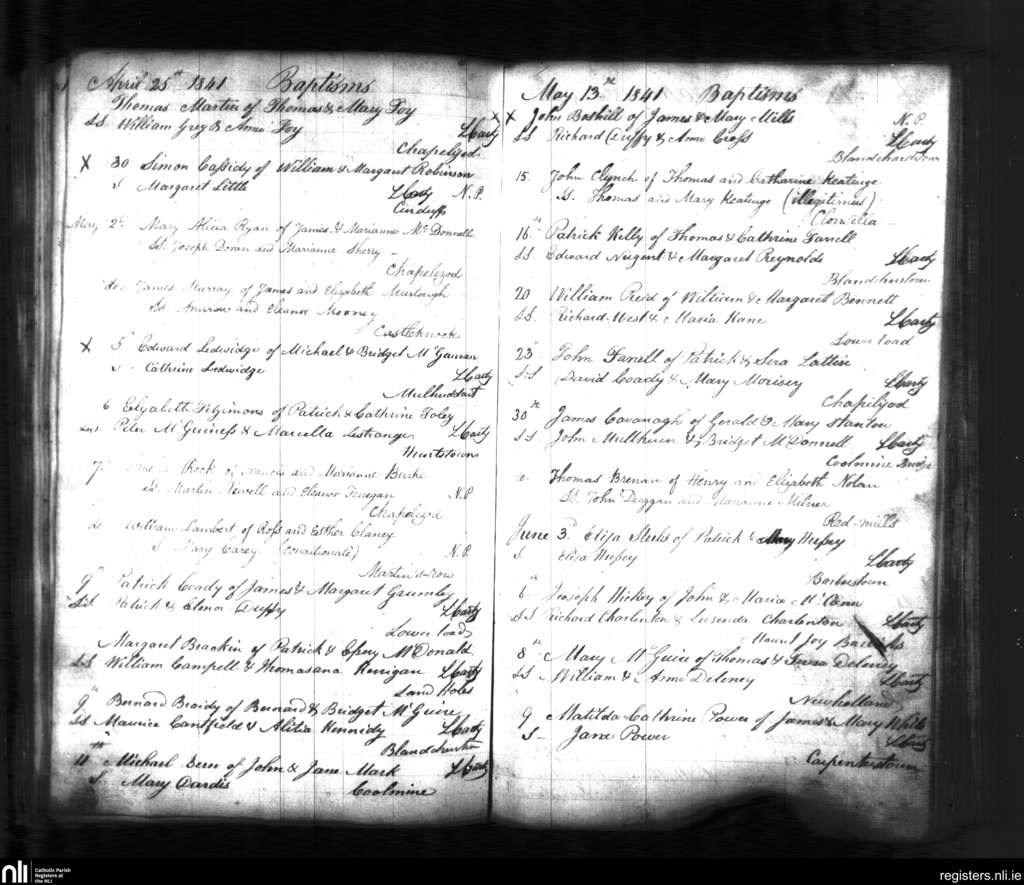 April 25th 1841 Baptisms
Thomas Martin of Thomas & Mary Foy
SS William Grey & Anne Foy LCarty
Chapelizod
X 30 Simon Cassidy of William & Margaret Robinson
S Margaret Little LCarty N.P.
May 2d Mary Alicia Ryan of James & Marianne McDonnell
SS. Joseph Doran and Marianne Sherry
Chapelizod
do. James Murray of James and Elizabeth
SS. Andrew and Eleanor Mooney
Castleknock
X 5 Edward Ledwidge of Michael & Bridget McGannan
S Cathrine Ledwidge LCarty
Mulhuddart
6 Elizabeth Fitzimons of Patrick & Cathrine Foley
Peter McGuiness & Marcella Lestrange LCarty
Huntstown
7 Rock of Francis and Marianne Burke
SS. Martin Newell and Eleanor Finegan N.P.
Chapelizod
do William Lambert of Ross and Esther Clancy
S Mary Carey (conditionate) N.P.
Martin's-row
9th Patrick Coady of James & Margaret Grumley
SS Patrick & Elenor Duffy LCarty
Lower road
Margaret Brackin of Patrick & McDonald
SS William Campell & Thomasana Kerrigan LCarty
Sand Holes
9th Bernard Braidy of Bernard & Bridget McGuire
SS Maurice Cantfield & Alitia Kennidy LCarty
11th Michael Bern of John & Jane Mark LCarty
S Mary Dardis Coolmine
May 13th 1841 Baptisms
X X John Boshill of James & Mary Mills N.P.
SS Richard Duffy & Anne Cross LCarty
Blandchardstown
15. John Clynch of Thomas and Catharine Keatinge
SS. Thomas and Mary Keatinge (illegitimus)
Clonsilla
16th Patrick Kelly of Thomas & Cathrine Farrell
SS Edward Nugent & Margaret Reynolds LCarty
20 William Reid of William & Margaret Bennett
SS. Richard West & Maria Kane LCarty
Lower road
23d John Farrell of Patrick & Sera Lattin
SS David Coady & Mary Morisey LCarty
Chapelizod
30th James Cavanagh of Gerald & Mary Stanton
SS John Mullhern & Bridget McDonnell LCarty
Coolmine Bridge
Thomas Brenan of Henry and Elizabeth Nolan
SS. John Duggan and Marianne Milner
Red-mills
June 3. Eliza of Patrick & Mary Hussey
S Eliza Hussey LCarty
6th Joseph Hickey of John & Maria McCann
SS Richard Charlenton & Lusenda Charlenton LCarty
Mount Joy Barracks
8th Mary McGuire of Thomas & Tresa Deleney
SS William & Anne Deleney LCarty
Newholland
9 Matilda Cathrine Power of James & Mary White
S Jane Power LCarty
Carpenterstown
nli Catholic Parish
Registers at
the NLI
registers.nli.ie